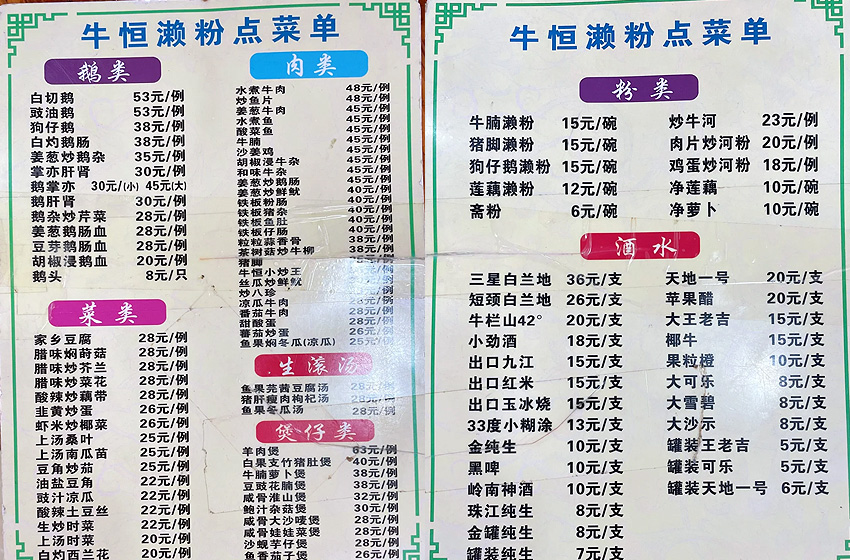 牛恒濑粉点菜单
鹅类
白切鹅 53元/例
豉油鹅 53元/例
狗仔鹅 38元/例
白灼鹅肠 38元/例
姜葱炒鹅杂 35元/例
掌亦肝肾 30元/例
鹅掌亦 30元/(小) 45元(大)
鹅肝肾 30元/例
鹅杂炒芹菜 28元/例
姜葱鹅肠血 28元/例
豆芽鹅肠血 28元/例
胡椒浸鹅血 20元/例
鹅头 8元/只
菜类
家乡豆腐 28元/例
腊味焖莳菇 28元/例
腊味炒芥兰 28元/例
腊味炒菜花 28元/例
酸辣炒藕带 28元/例
韭黄炒蛋 26元/例
虾米炒椰菜 26元/例
上汤桑叶 25元/例
上汤南瓜苗 25元/例
豆角炒茄 25元/例
油盐豆角 22元/例
豉汁凉瓜 22元/例
酸辣土豆丝 22元/例
生炒时菜 22元/例
上汤时菜 20元/例
白灼西兰花 20元/例
肉类
水煮牛肉 48元/例
炒鱼片 48元/例
姜葱牛肉 45元/例
水煮鱼 45元/例
酸菜鱼 45元/例
牛腩 45元/例
沙姜鸡 45元/例
胡椒浸牛杂 45元/例
和味牛杂 45元/例
姜葱炒鹅肠 40元/例
姜葱炒鲜鱿 40元/例
铁板粉肠 40元/例
铁板猪杂 40元/例
铁板鱼肚 40元/例
铁板仔肠 40元/例
粒粒蒜香骨 38元/例
茶树菇炒牛柳 38元/例
猪脚
牛恒小炒王 元/例
丝瓜炒鲜鱿 元/例
炒八珍 元/例
凉瓜牛肉 28元/例
番茄牛肉 28元/例
甜酸蛋 28元/例
蕃茄炒蛋 26元/例
鱼果焖冬瓜(凉瓜) 25元/例
生滚汤
鱼果芫茜豆腐汤 28元/例
猪肝瘦肉枸杞汤 28元/例
鱼果冬瓜汤 28元/例
煲仔类
羊肉煲 63元/例
白果支竹猪肚煲 40元/例
牛腩萝卜煲 38元/例
豆豉花腩煲 38元/例
咸骨淮山煲 32元/例
鲍汁杂菇煲 30元/例
咸骨大沙唛煲 28元/例
咸骨娃娃菜煲 28元/例
沙蚬芋仔煲 28元/例
鱼香茄子煲 26元/例
牛恒濑粉点菜单
粉类
牛腩濑粉 15元/碗
猪脚濑粉 15元/碗
狗仔鹅濑粉 15元/碗
莲藕濑粉 12元/碗
斋粉 6元/碗
炒牛河 23元/例
肉片炒河粉 20元/例
鸡蛋炒河粉 18元/例
净莲藕 10元/碗
净萝卜 10元/碗
酒水
三星白兰地 36元/支
短颈白兰地 26元/支
牛栏山42° 20元/支
小劲酒 18元/支
出口九江 15元/支
出口红米 15元/支
出口玉冰烧 15元/支
33度小糊涂 13元/支
金纯生 10元/支
黑啤 10元/支
岭南神酒 10元/支
珠江纯生 8元/支
金罐纯生 8元/支
罐装纯生 7元/支
天地一号 20元/支
苹果醋 20元/支
大王老吉 15元/支
椰牛 15元/支
果粒橙 10元/支
大可乐 8元/支
大雪碧 8元/支
大沙示 8元/支
罐装王老吉 5元/支
罐装可乐 5元/支
罐装天地一号 6元/支